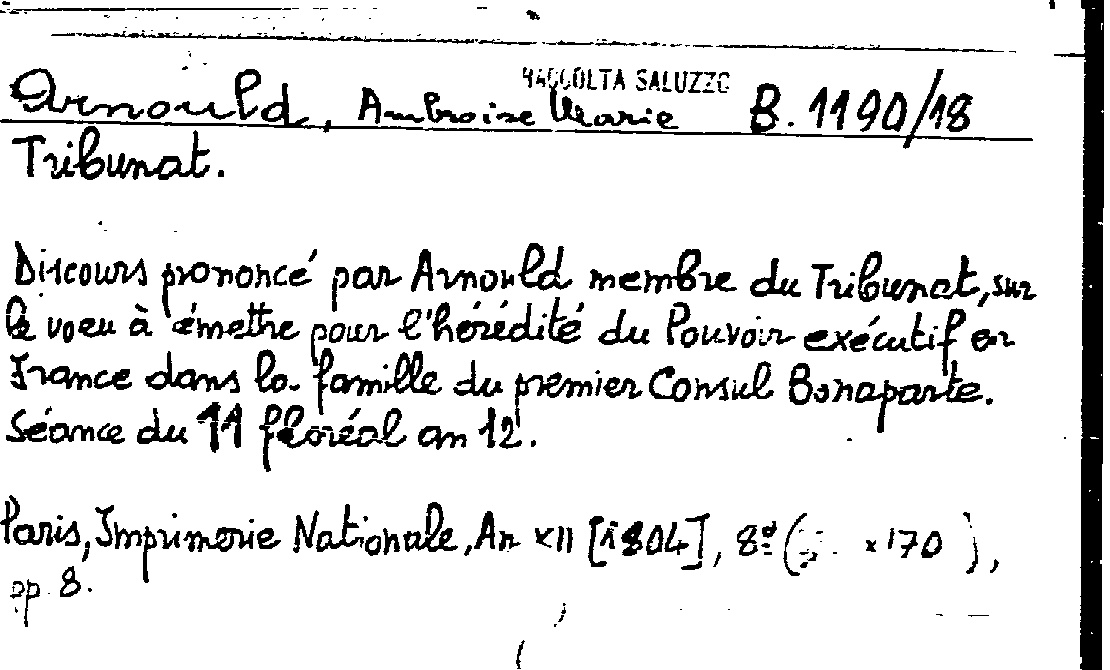 RACCOLTA SALUZZO
Arnould, Ambroise Marie B. 1190/18
Tribunat.
Discours prononcé par Arnould membre du Tribunat, sur
le voeu à émettre pour l'hérédité du Pouvoir exécutif en
France dans la famille du premier Consul Bonaparte.
Séance du 11 floréal an 12.
Paris, Imprimerie Nationale, An XII [1804], 8º ( x170 ),
pp. 8.